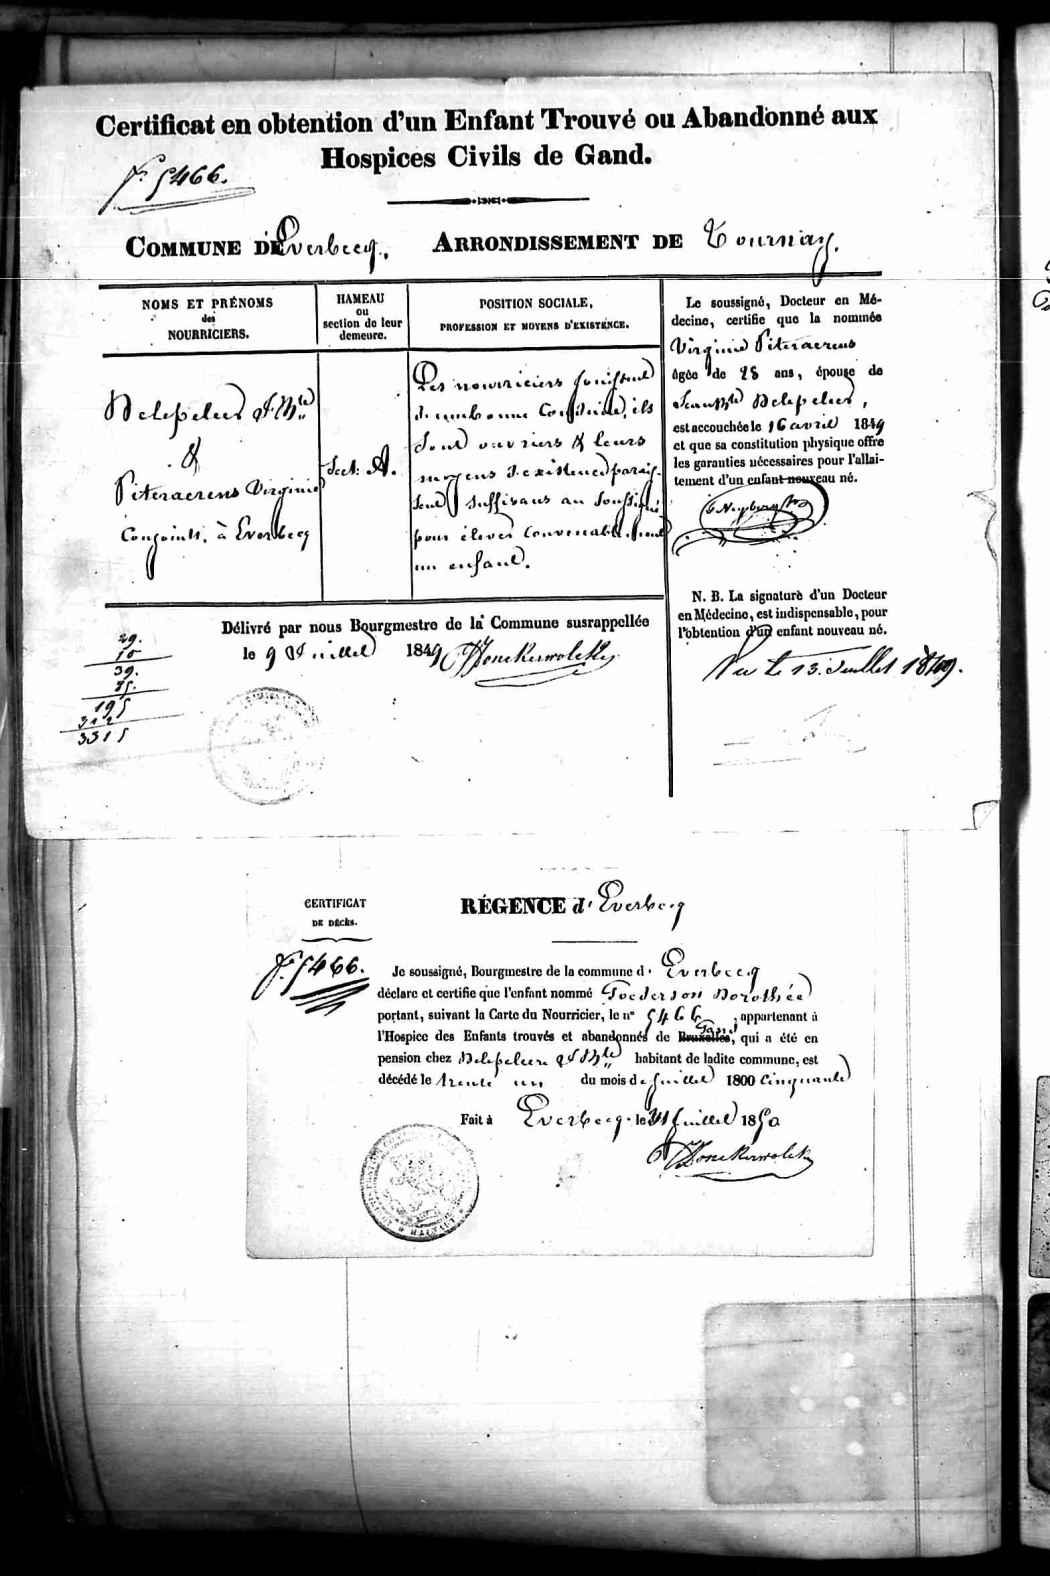 Certificat en obtention d'un Enfant Trouvé ou Abandonné aux
Hospices Civils de Gand.
5466.
COMMUNE DE Everbecq, ARRONDISSEMENT DE Tournay.
NOMS ET PRÉNOMS
des
NOURRICIERS.
HAMEAU
ou
section de leur
demeure.
POSITION SOCIALE,
PROFESSION ET MOYENS D'EXISTENCE.
Delepeleer J. Bte
&
Piteraerens Virginie
Conjoints, à Everbecq
Sect: A.
Les nourriciers jouissent
d'une bonne conduite, ils
sont ouvriers & leurs
moyens d'existence parais-
sent suffisans au soussigné
pour élever convenablement
un enfant.
Le soussigné, Docteur en Mé-
decine, certifie que la nommée
Virginie Piteraerens
âgée de 28 ans, épouse de
Jean Bte Delepeleer,
est accouchée le 16 avril 1849
et que sa constitution physique offre
les garanties nécessaires pour l'allai-
tement d'un enfant nouveau né.
N. B. La signature d'un Docteur
en Médecine, est indispensable, pour
l'obtention d'un enfant nouveau né.
Vu le 13 Juillet 1849.
Délivré par nous Bourgmestre de la Commune susrappellée
le 9 Juillet 1849
29.
10
39.
195
312
3315
CERTIFICAT
DE DÉCÈS.
5466.
RÉGENCE d' Everbecq
Je soussigné, Bourgmestre de la commune d' Everbecq
déclare et certifie que l'enfant nommé Dorothée
portant, suivant la Carte du Nourricier, le n° 5466, appartenant à
l'Hospice des Enfants trouvés et abandonnés de Bruxelles, Gand qui a été en
pension chez Delepeleer J. Bte habitant de ladite commune, est
décédé le trente un du mois de Juillet 1800 cinquante
Fait à Everbecq le 31 Juillet 1850
HAINAUT